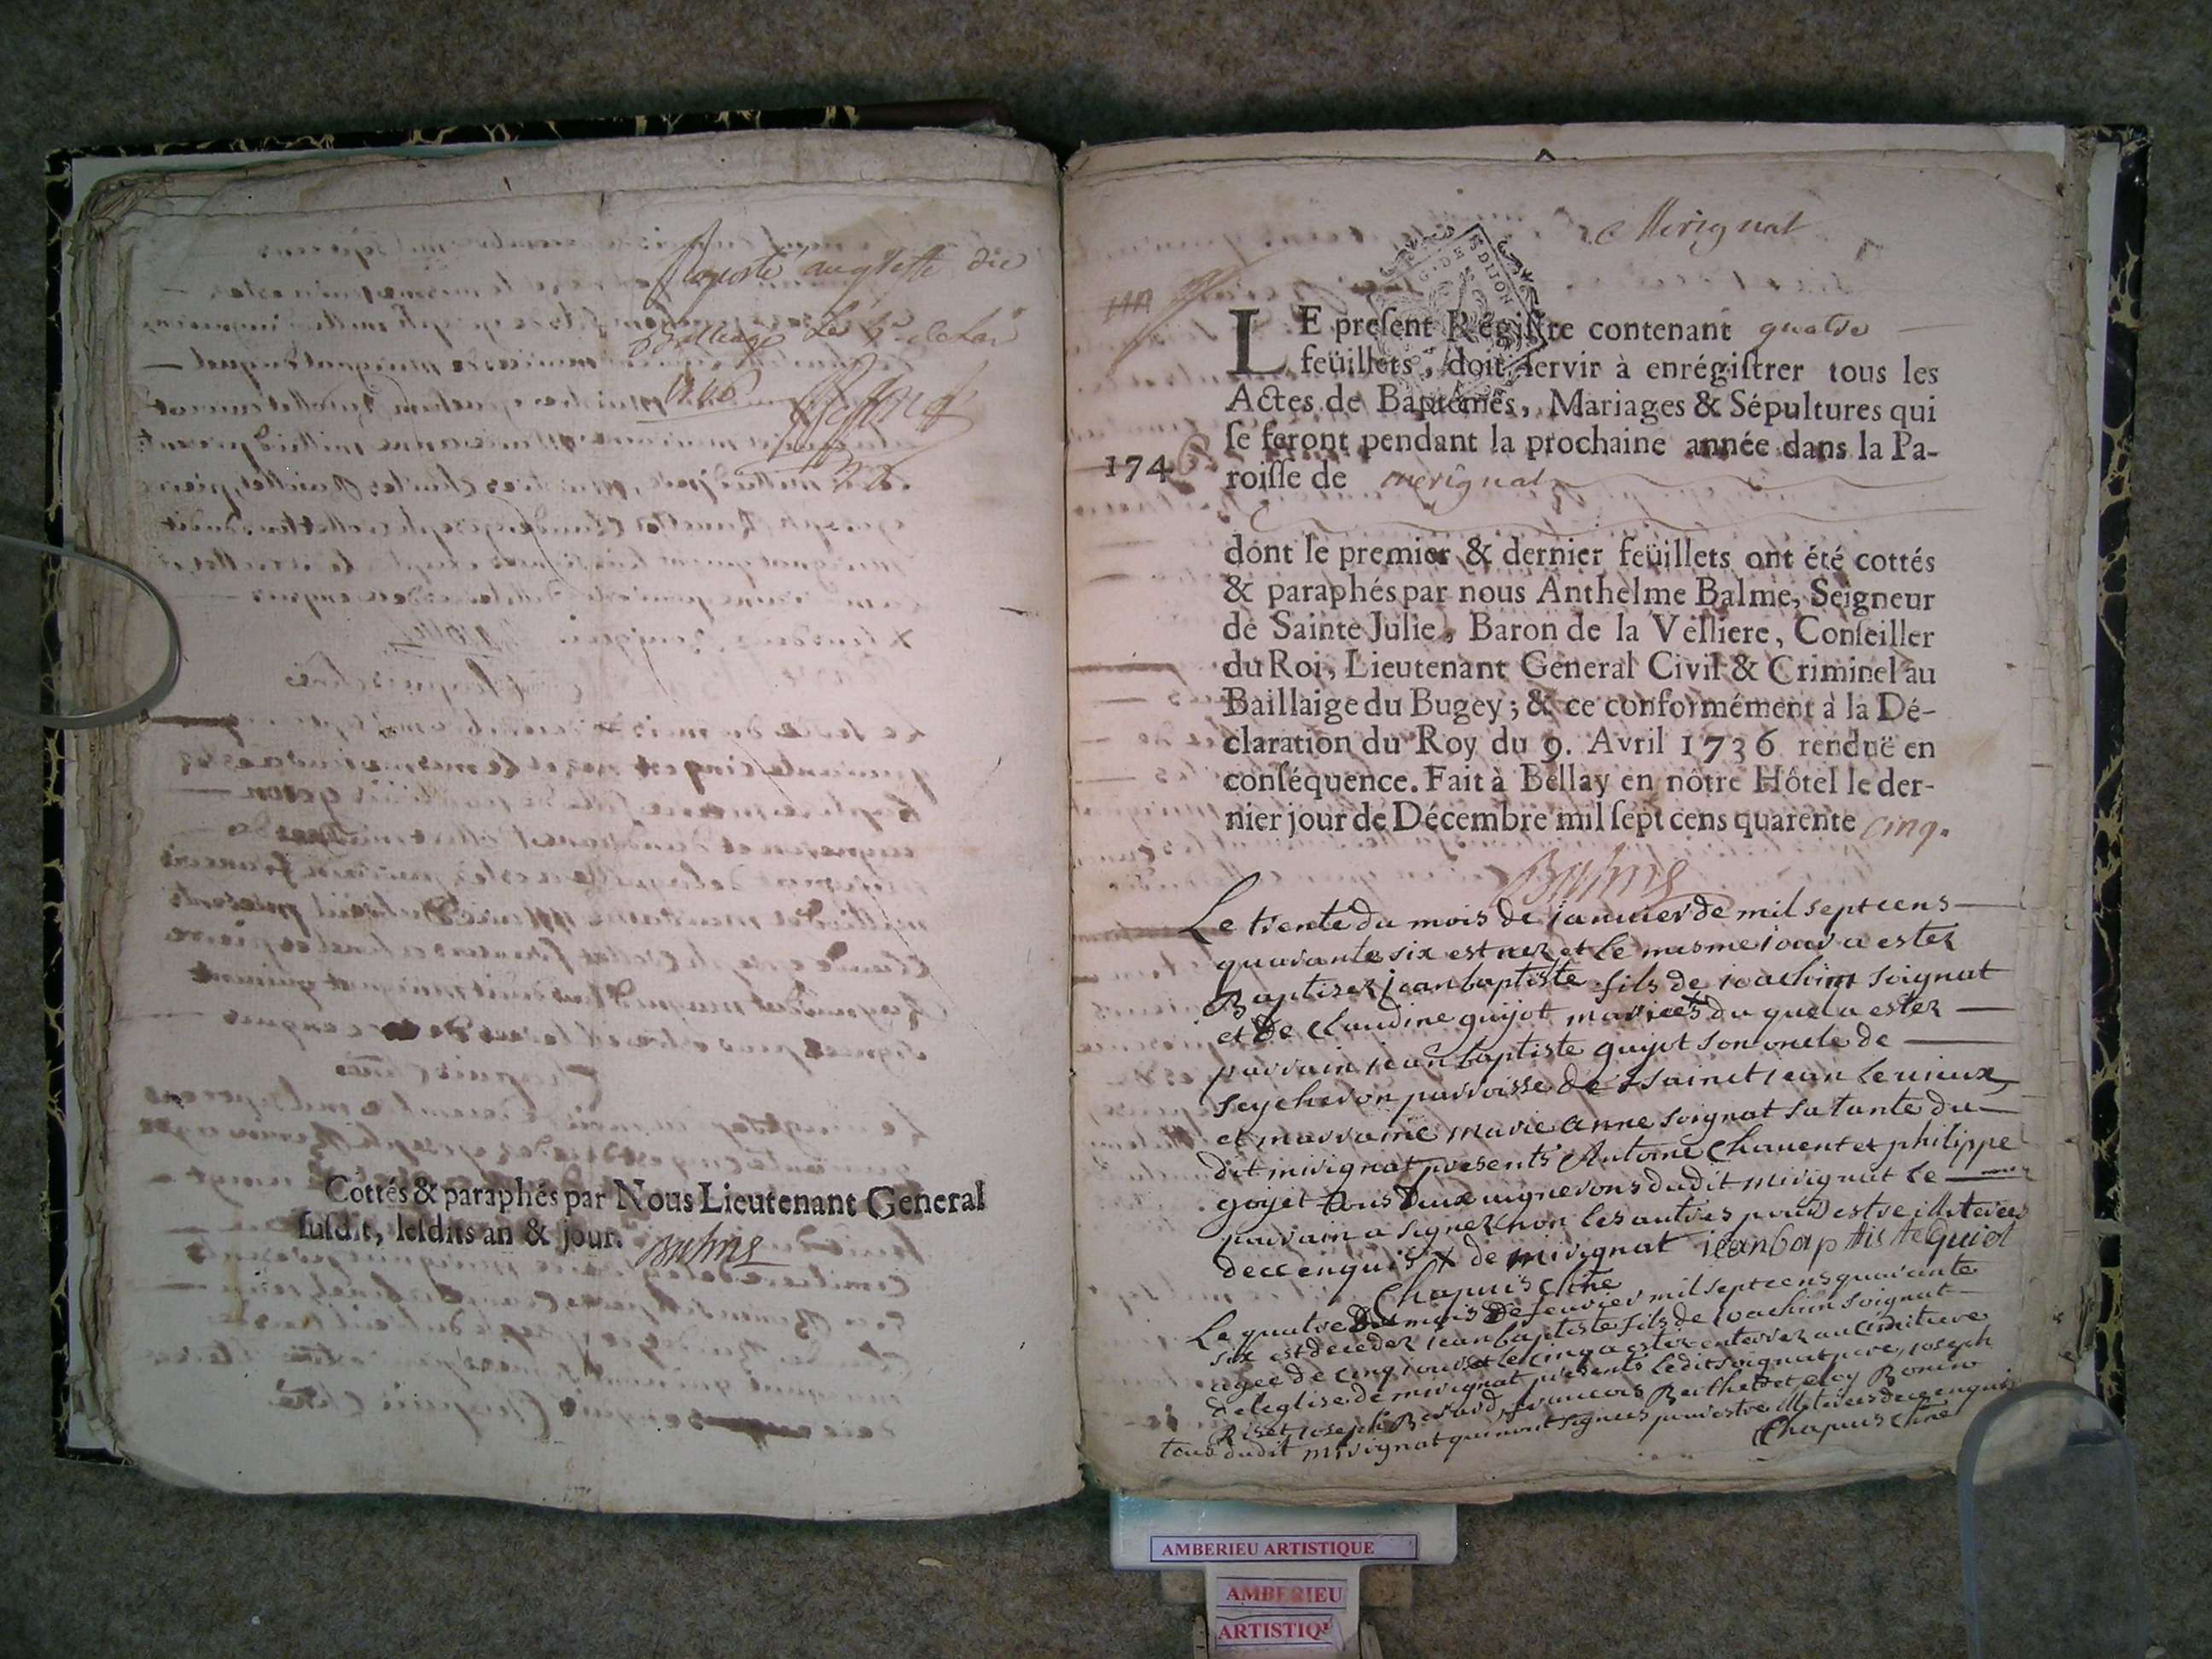 aporté au greffe du
Balliage
Cottés & paraphés par Nous Lieutenant General
ſuſdit, leſdits an & jour. Balme
Merignat
G. DE DIJON
LE preſent Régiſtre contenant quatre
feüillets, doit ſervir à enrégiſtrer tous les
Actes de Baptêmes, Mariages & Sépultures qui
ſe feront pendant la prochaine année dans la Pa-
1746 roiſſe de merignat
dont le premier & dernier feüillets ont été cottés
& paraphés par nous Anthelme Balme, Seigneur
de Sainte Julie, Baron de la Velliere, Conſeiller
du Roi, Lieutenant General Civil & Criminel au
Baillaige du Bugey; & ce conformément à la Dé-
claration du Roy du 9. Avril 1736 renduë en
conſéquence. Fait à Bellay en nôtre Hôtel le der-
nier jour de Décembre mil ſept cens quarente cinq.
Balme
Le trente du mois de ianvier de mil sept cens
quarante six est nez et le mesme iour a estez
Baptisez iean baptiste fils de ioachim soignat
et de Claudine guijot mariees du quel a estez
parrain iean baptiste guijot son oncle de
seycheron parroisse de sainct iean le vieux
et marraine marie anne soignat sa tante du
dit mirignat presents Antoine Chauent et philippe
gojet tous deux vignerons dudit mirignat le
parrain a signez non les autres pour estre illiterees
de ce enquis X de mirignat iean baptiste Guiot
Chapuis Curé
Le quatre du mois de feuvrier mil sept cens quarante
six est decedez iean baptiste fils de ioachim soignat
agee de cinq iours et le cinq a estez enterrez au cimitiere
de leglise de mirignat presents ledit soignat pere, ioseph
Riset ioseph Berard, francois Berthet et eloy Bonino
tous dudit mirignat qui nont signees pour estre illiterees de ce enquis
Chapuis Curé
AMBERIEU ARTISTIQUE
AMBERIEU
ARTISTIQ